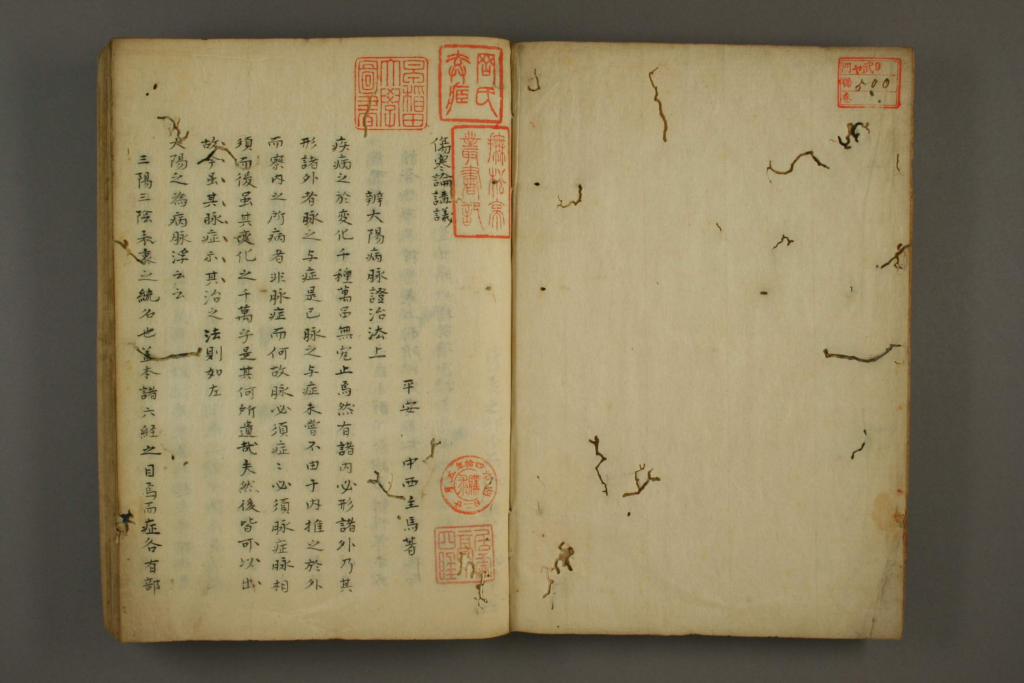 500
傷寒論講議
辨大陽病脉證治法上
平安 中西主馬著
疾病之於変化千種萬品無究止焉然有諸内必形諸外乃其
形諸外者脉之与症是已脉之与症未嘗不由于内推之於外
而察内之所病者非脉症而何故脉必須症〻必須脉症脉相
須而後虽其変化之千萬乎是其何所遺哉夫然後皆可以出
故今虽其脉症示其治之法則如左
大陽之為病脉浮云云
三陽三陰表裏之統名也盖本諸六經之目焉而症各有部
早稲田大學圖書